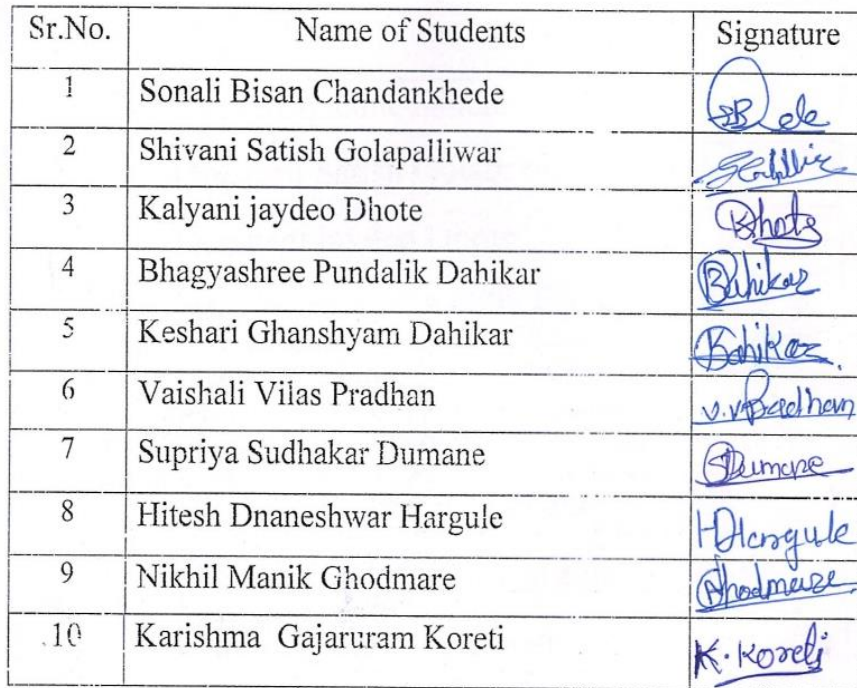 Sr.No. Name of Students Signature
1 Sonali Bisan Chandankhede
2 Shivani Satish Golapalliwar
3 Kalyani jaydeo Dhote Dhote
4 Bhagyashree Pundalik Dahikar Dahikar
5 Keshari Ghanshyam Dahikar Dahikar
6 Vaishali Vilas Pradhan v.v.Pradhan
7 Supriya Sudhakar Dumane Dumane
8 Hitesh Dnaneshwar Hargule HDHargule
9 Nikhil Manik Ghodmare Ghodmare
10 Karishma Gajaruram Koreti K. Koreti